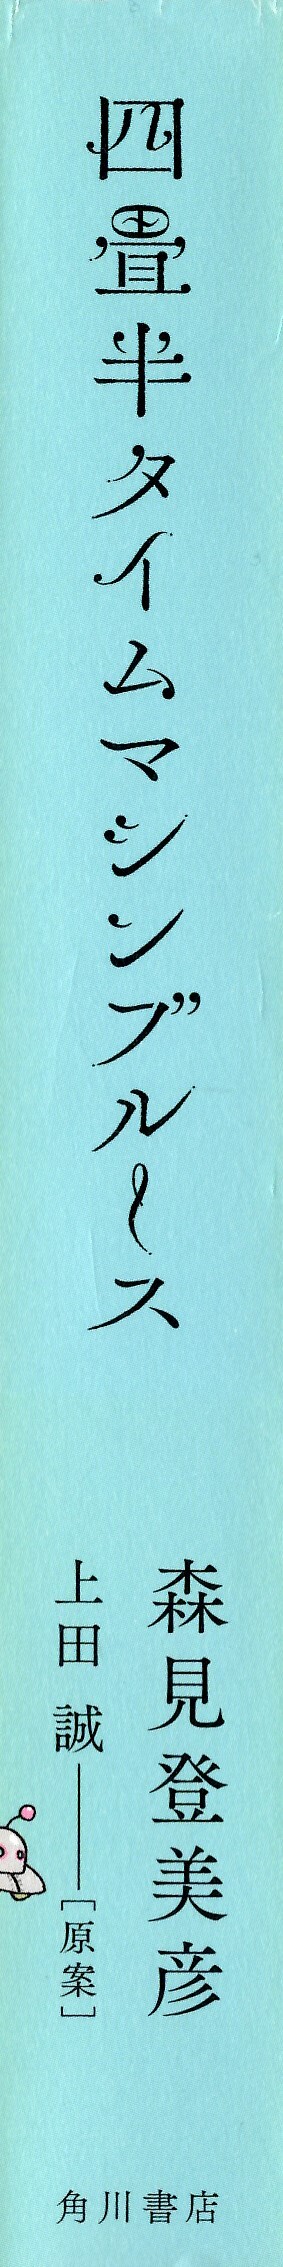 四畳半タイムマシンブルース
森見登美彦
上田 誠──[原案]
角川書店